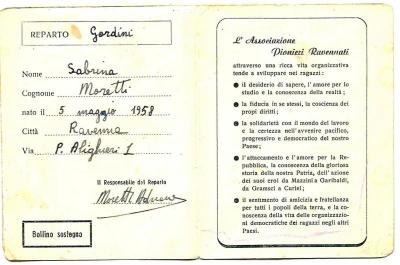 REPARTO Gordini
Nome Sabrina
Cognome Moretti
nato il 5 maggio 1958
Città Ravenna
Via P. Alighieri 1
Il Responsabile del Reparto
Moretti
Bollino sostegno
L'Associazione
Pionieri Ravennati
attraverso una ricca vita organizzativa
tende a sviluppare nei ragazzi:
● il desiderio di sapere, l'amore per lo
studio e la conoscenza della realtà;
● la fiducia in se stessi, la coscienza dei
propri diritti;
● la solidarietà con il mondo del lavoro
e la certezza nell'avvenire pacifico,
progressivo e democratico del nostro
Paese;
● l'attaccamento e l'amore per la Re-
pubblica, la conoscenza della gloriosa
storia della nostra Patria, dell'azione
dei suoi eroi da Mazzini a Garibaldi,
da Gramsci a Curiel;
● il sentimento di amicizia e fratellanza
per tutti i popoli della terra, e la co-
noscenza della vita delle organizzazio-
ni democratiche dei ragazzi negli altri
Paesi.